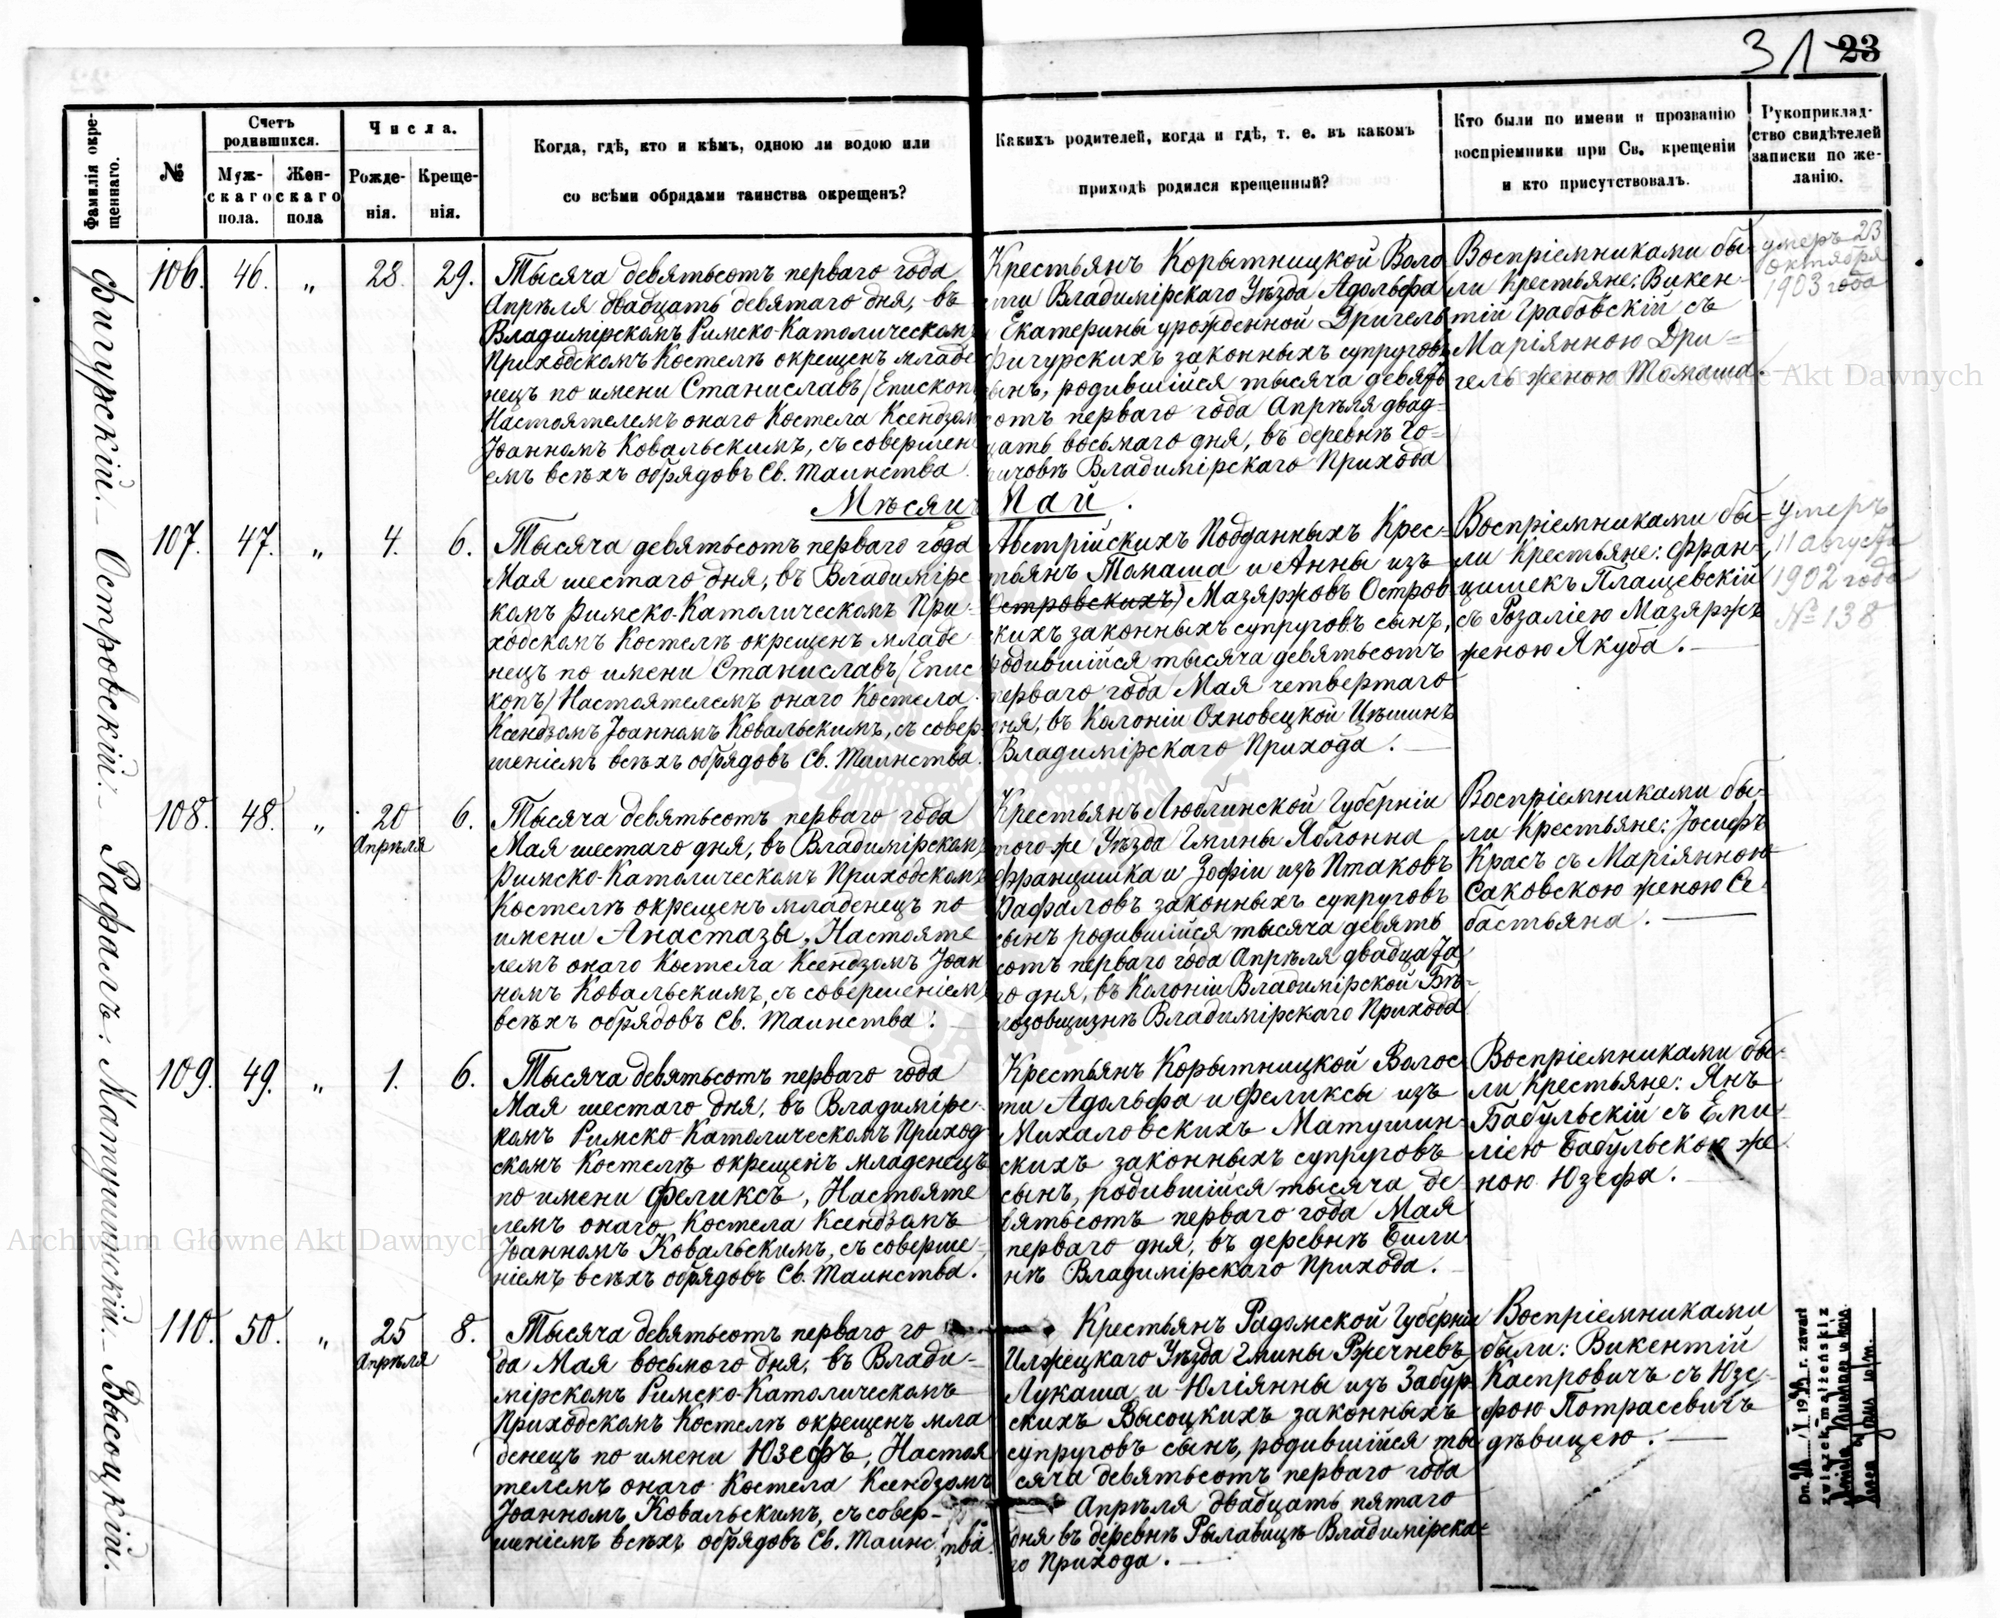 31 23
Фамилія окре-
щеннаго.
№
Счетъ
родившихся.
Муж-
скаго
пола.
Жен-
скаго
пола
Числа.
Рожде-
нія.
Креще-
нія.
Когда, гдѣ, кто и кѣмъ, одною ли водою или
со всѣми обрядами таинства окрещенъ?
Какихъ родителей, когда и гдѣ, т. е. въ какомъ
приходѣ родился крещенный?
Кто были по имени и прозванію
воспріемники при Св. крещеніи
и кто присутствовалъ.
Рукоприклад-
ство свидѣтелей
записки по же-
ланію.
Фигурскій. – Островскій. – Рафалъ: Матушинскій. – Высоцкій. –
106. 46. „ 28. 29.
Тысяча девятьсотъ перваго года
Апрѣля двадцать девятаго дня, въ
Владимірскомъ Римско-Католическомъ
Приходскомъ Костелѣ окрещенъ младе
нецъ по имени Станиславъ (Епископ
Настоятелемъ онаго Костела Ксендзом
Іоанномъ Ковальскимъ, съ совершен
емъ всѣхъ обрядовъ Св. Таинства.
Крестьянъ Корытницкой Воло
сти Владимірскаго Уѣзда Адольфа
Екатерины урожденной Дригель
Фигурскихъ законныхъ супруговъ
сынъ, родившійся тысяча девять
сотъ перваго года Апрѣля двад-
цать восьмаго дня, въ деревнѣ
Владимірскаго Прихода
Воспріемниками бы-
ли Крестьяне: Викен-
тій Грабовскій съ
Маріянною Дри-
гель женою Томаша. –
умеръ 23
октября
1903 года
Мѣсяцъ Май.
107. 47. „ 4. 6.
Тысяча девятьсотъ перваго года
Мая шестаго дня, въ Владимірс
комъ Римско-Католическомъ При-
ходскомъ Костелѣ окрещенъ младе
нецъ по имени Станиславъ (Епис
копъ) Настоятелемъ онаго Костела
Ксендзомъ Іоанномъ Ковальскимъ, съ совер-
шеніемъ всѣхъ обрядовъ Св. Таинства.
Австрійскихъ Подданныхъ Крес-
тьянъ Томаша и Анны изъ
Островскихъ) Мазяржовъ Остров
скихъ законныхъ супруговъ сынъ,
родившійся тысяча девятьсотъ
перваго года Мая четвертаго
дня, въ Колоніи Охновецкой
Владимірскаго Прихода. –
Воспріемниками бы-
ли Крестьяне: Фран-
цишекъ Плащевскій
съ Розаліею Мазяржъ
женою Якуба. –
умеръ
11 августа
1902 года
№ 138
108. 48. „ 20 Апрѣля 6.
Тысяча девятьсотъ перваго года
Мая шестаго дня, въ Владимірскомъ
Римско-Католическомъ Приходскомъ
Костелѣ окрещенъ младенецъ по
имени Анастазы, Настояте
лемъ онаго Костела Ксендзомъ Іоан
номъ Ковальскимъ, съ совершеніемъ
всѣхъ обрядовъ Св. Таинства. –
Крестьянъ Люблинской Губерніи
того же Уѣзда Гмины Яблонна
Францишка и Зофіи изъ Птаковъ
Рафаловъ законныхъ супруговъ
сынъ родившійся тысяча девять
сотъ перваго года Апрѣля двадцата
го дня, въ Колоніи Владимірской
Владимірскаго Прихода
Воспріемниками бы-
ли Крестьяне: Іосифъ
Красъ съ Маріянною
Саковскою женою Се
бастьяна. –
109. 49. „ 1. 6.
Тысяча девятьсотъ перваго года
Мая шестаго дня, въ Владимірс-
комъ Римско-Католическомъ Приход
скомъ Костелѣ окрещенъ младенецъ
по имени Феликсъ, Настояте
лемъ онаго Костела Ксендзомъ
Іоанномъ Ковальскимъ, съ соверше-
ніемъ всѣхъ обрядовъ Св. Таинства.
Крестьянъ Корытницкой Волос-
ти Адольфа и Феликсы изъ
Михаловскихъ Матушин-
скихъ законныхъ супруговъ
сынъ, родившійся тысяча де-
вятьсотъ перваго года Мая
перваго дня, въ деревнѣ Били
нѣ Владимірскаго Прихода. –
Воспріемниками бы-
ли Крестьяне: Янъ
Бабульскій съ Еми
ліею Бабульскою же
ною Юзефа. –
110. 50. „ 25 Апрѣля 8.
Тысяча девятьсотъ перваго го
да Мая восьмого дня, въ Влади-
мірскомъ Римско-Католическомъ
Приходскомъ Костелѣ окрещенъ мла
денецъ по имени Юзефъ, Настоя
телемъ онаго Костела Ксендзомъ
Іоанномъ Ковальскимъ, съ совер-
шеніемъ всѣхъ обрядовъ Св. Таинства.
Крестьянъ Радомской Губерніи
Илжецкаго Уѣзда Гмины Ржечневъ
Лукаша и Юліянны изъ Забур
скихъ Высоцкихъ законныхъ
супруговъ сынъ, родившійся ты
сяча девятьсотъ перваго года
Апрѣля двадцать пятаго
дня въ деревнѣ Рылавицѣ Владимірска
го Прихода. –
Воспріемниками
были: Викентій
Каспровичъ съ Юзе-
фою Потрасевичъ
дѣвицею. –
r. zawarł
związek małżeński z
Archiwum Główne Akt Dawnych
Archiwum Główne Akt Dawnych